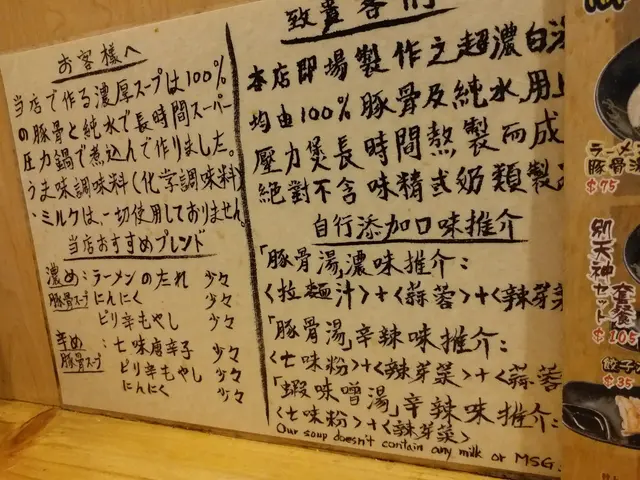 お客様へ
当店で作る濃厚スープは100%
の豚骨と純水で長時間スーパー
圧力鍋で煮込んで作りました。
うま味調味料(化学調味料)
・ミルクは、一切使用しておりません。
当店おすすめブレンド
濃め:ラーメンのたれ 少々
豚骨スープ にんにく 少々
ピリ辛もやし 少々
辛め:七味唐辛子 少々
豚骨スープ ピリ辛もやし 少々
にんにく 少々
致貴客們
本店即場製作之超濃白湯
均由100%豚骨及純水,用
壓力煲長時間熬製而成
絕對不含味精或奶類製
自行添加口味推介
「豚骨湯」濃味推介:
<拉麵汁>+<蒜蓉>+<辣芽菜
「豚骨湯」辛辣味推介:
<七味粉>+<辣芽菜>+<蒜蓉
「蝦味噌湯」辛辣味推介:
<七味粉>+<辣芽菜>
Our soup doesn't contain any milk or MSG.
ラーメン
豚骨湯
$75
別天神セット
套餐
$105
餃子
$35